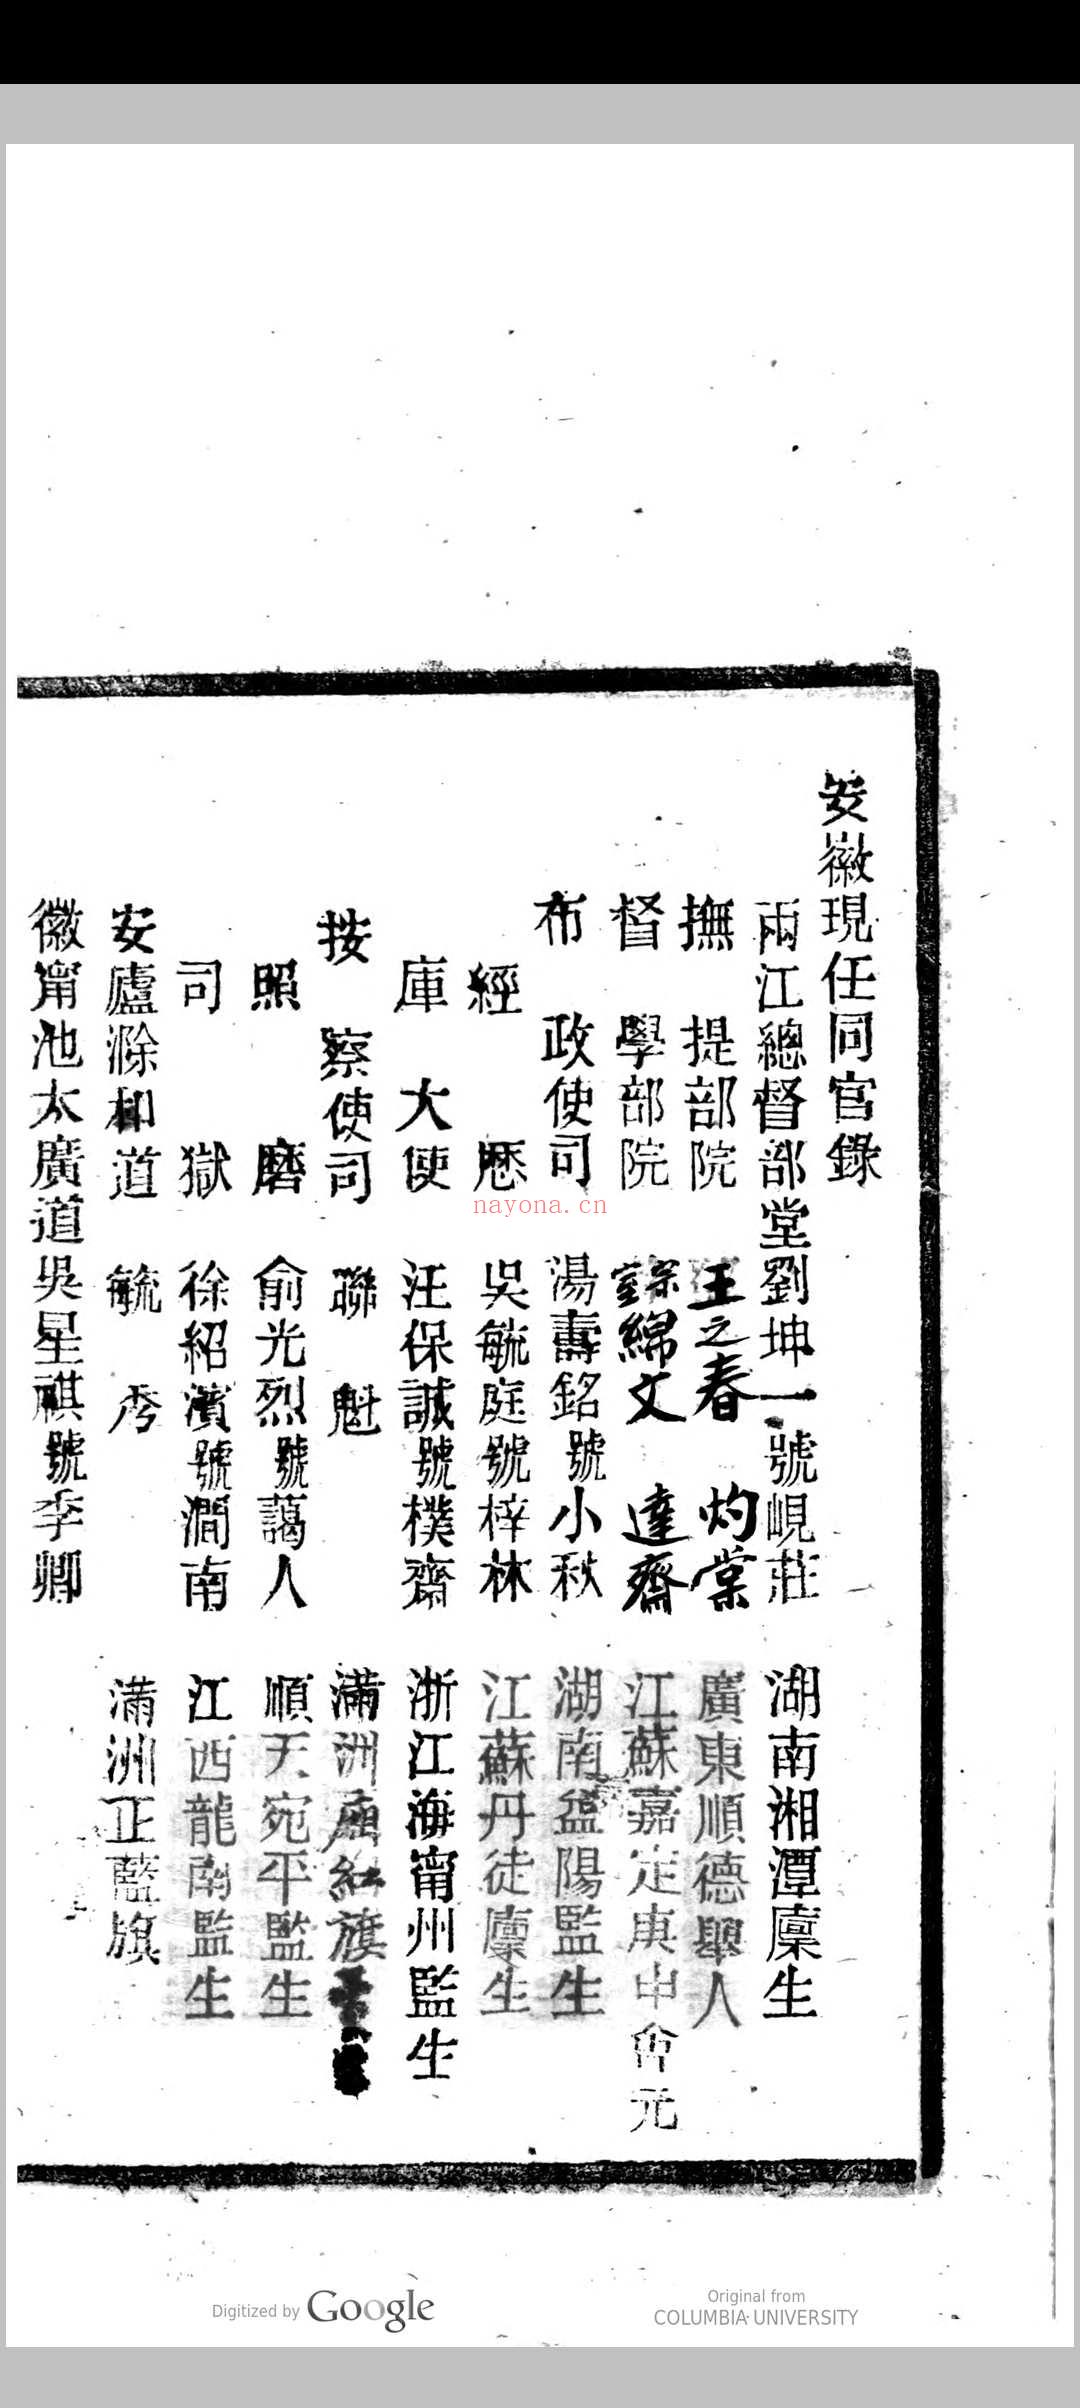 安徽現任同官錄
兩江總督部堂劉坤一號峴莊 湖南湘潭廩生
撫提部院 王之春 灼棠 廣東順德舉人
督學部院 宗室綿文 達齋 江蘇嘉定庚申會元
布政使司 湯壽銘號小秋 湖南益陽監生
經歷 吳毓庭號梓林 江蘇丹徒廩生
庫大使 汪保誠號樸齋 浙江海甯州監生
按察使司 聯魁 滿洲廂紅旗
照磨 俞光烈號藹人 順天宛平監生
司獄 徐紹濱號澗南 江西龍南監生
安廬滁和道 毓秀 滿洲正藍旗
徽甯池太廣道吳星祺號李卿
nayona.cn
Digitized by Google
Original from
COLUMBIA UNIVERSITY